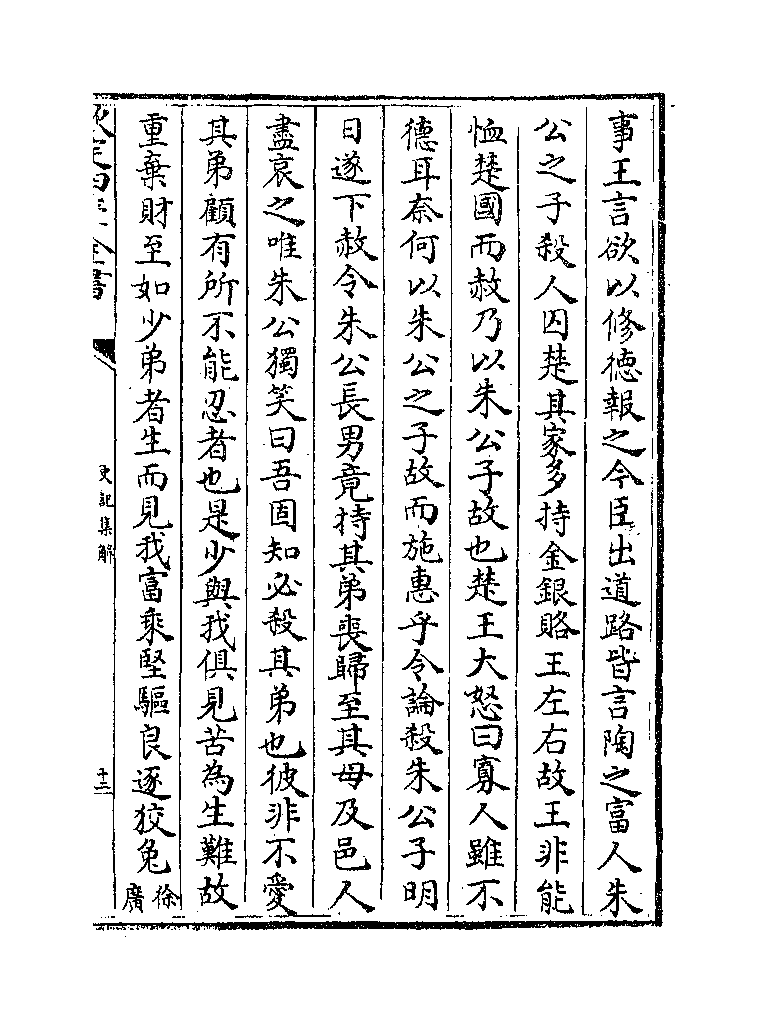 事王言欲以修德報之今臣出道路皆言陶之富人朱
公之子殺人囚楚其家多持金銀賂王左右故王非能
恤楚國而赦乃以朱公子故也楚王大怒曰寡人雖不
德耳奈何以朱公之子故而施惠乎令論殺朱公子明
日遂下赦令朱公長男竟持其弟喪歸至其母及邑人
盡哀之唯朱公獨笑曰吾固知必殺其弟也彼非不愛
其弟顧有所不能忍者也是少與我俱見苦為生難故
重棄財至如少弟者生而見我富乘堅驅良逐狡兔徐
廣
欽定四庫全書
史記集解
十三